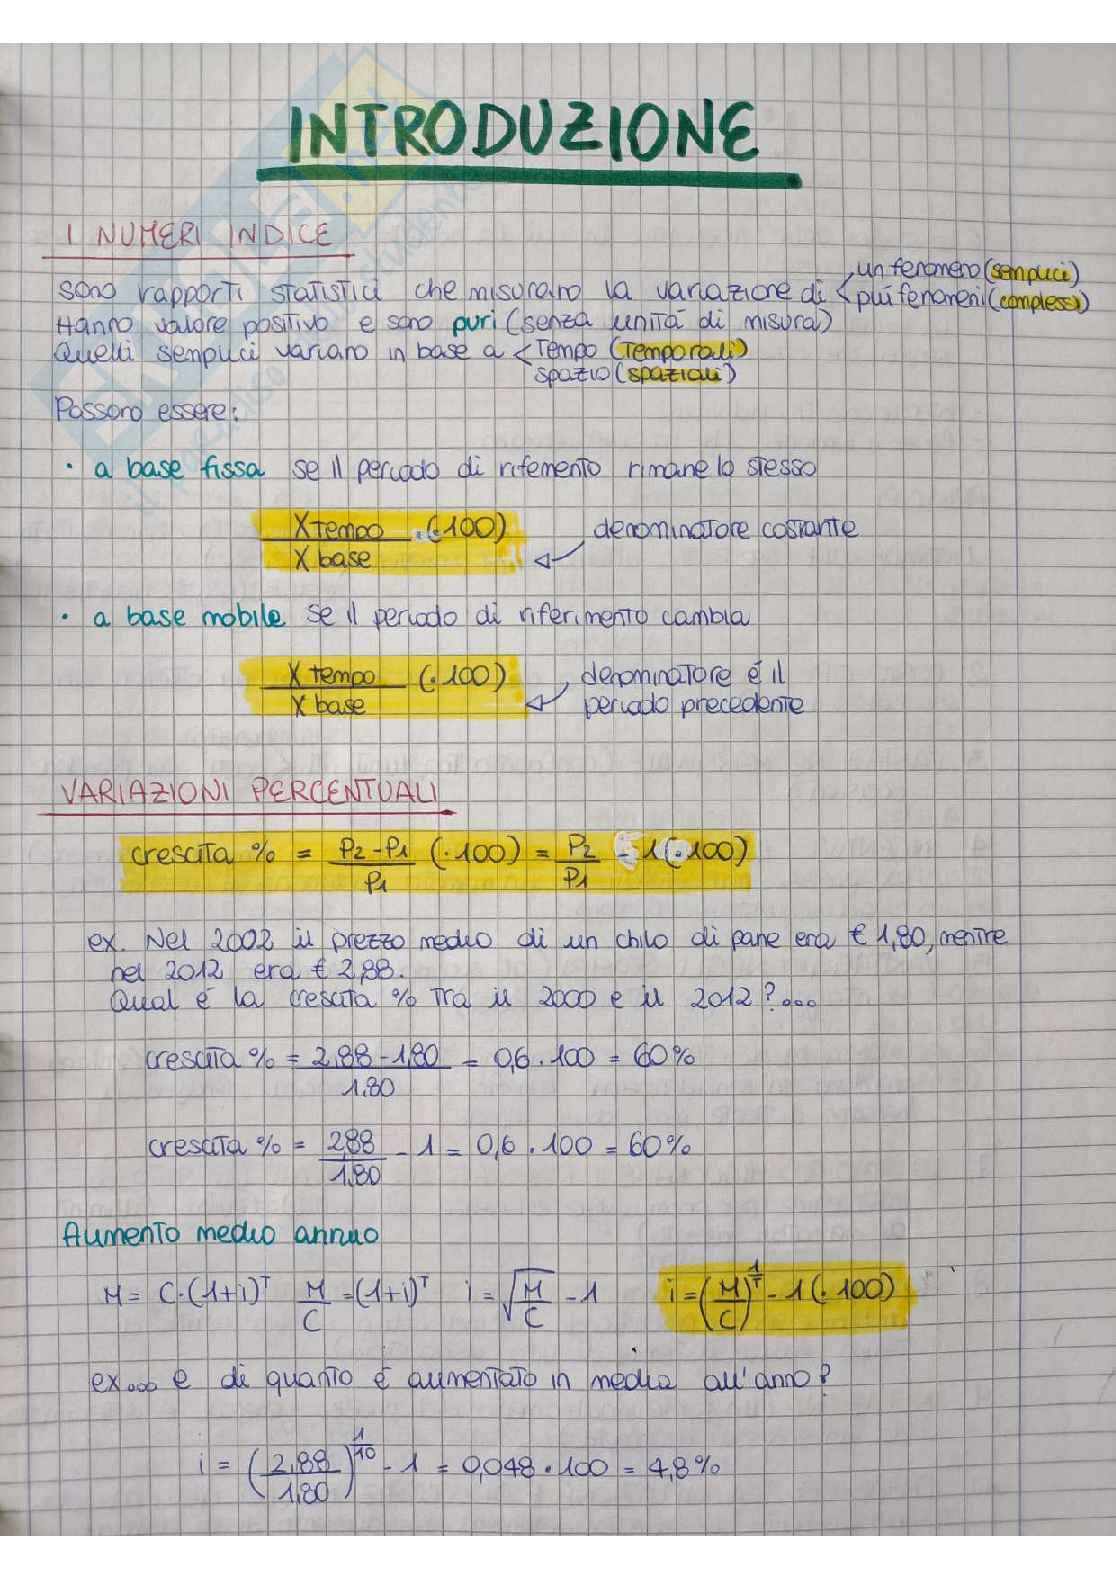 INTRODUZIONE
I NUMERI INDICE
sono rapporti statistici che misurano la variazione di < un fenomeno (semplici)
più fenomeni (complessi)
Hanno valore positivo e sono puri (senza unità di misura)
Quelli semplici variano in base a < Tempo (Temporali)
spazio (spaziali)
Possono essere:
· a base fissa se il periodo di rifemento rimane lo stesso
X Tempo (·100) denominatore costante
X base
· a base mobile se il periodo di riferimento cambia
X tempo (·100) denominatore é il
X base periodo precedente
VARIAZIONI PERCENTUALI
crescita % = P2-P1 (·100) = P2 - 1 (·100)
P1 P1
ex. Nel 2002 il prezzo medio di un chilo di pane era € 1,80, mentre
nel 2012 era € 2,88.
Qual é la crescita % tra il 2000 e il 2012?...
crescita % = 2,88-1,80 = 0,6 · 100 = 60%
1,80
crescita % = 2,88 - 1 = 0,6 · 100 = 60%
1,80
Aumento medio annuo
M = C·(1+i)^T M/C = (1+i)^T i = √M/C - 1 i = (M/C)^1/T - 1 (·100)
ex... e di quanto é aumentato in media all'anno?
i = (2,88/1,80)^1/10 - 1 = 0,048 · 100 = 4,8%